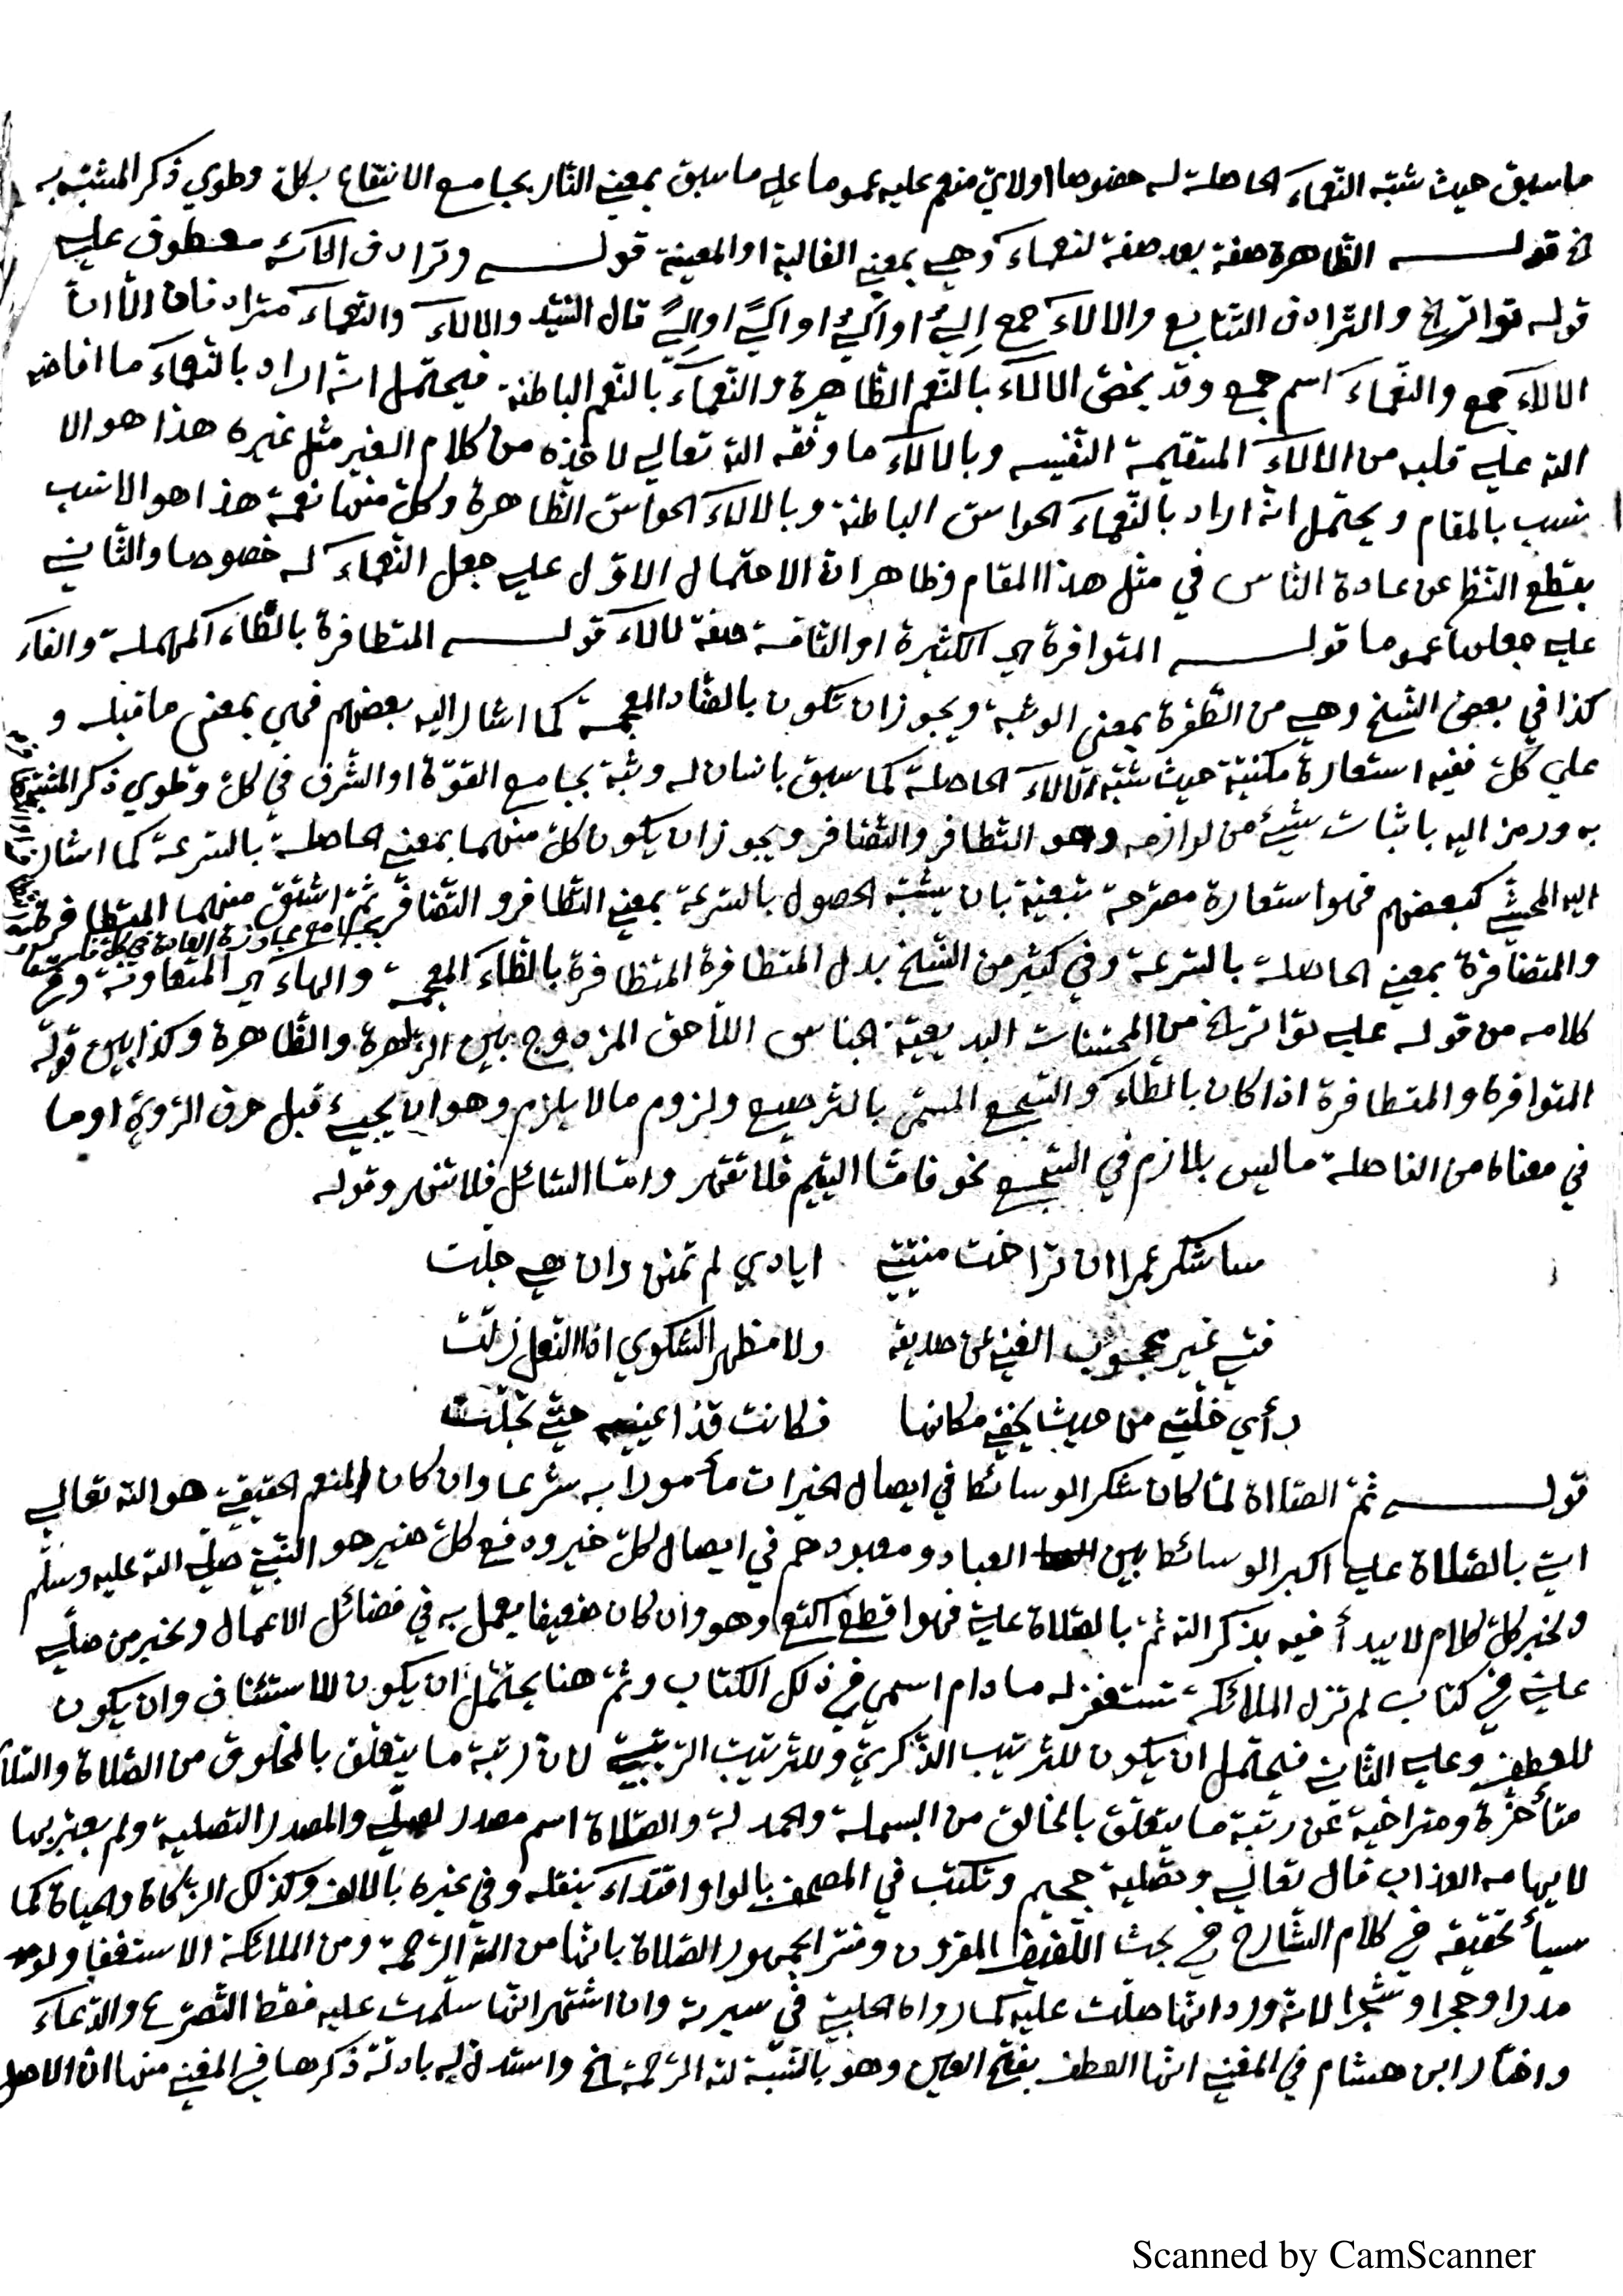 ما سبق حيث شبّه النّعمآء الحاصلة له خصوصا اولايّ منعم عليه عموما على ما سبق بمعنى الثار بجامع الانتفاع بكلّ وطوي ذكر المشبّه به
الخ قولـــــه الظّاهرة صفة بعد صفة لنعمآء وهي بمعنى الغالبة او المعينة قولـــــه وترادف الآلائه معطوف على
قوله تواتر الخ والترادف التتابع والالآء جمع اِلْيٌ او اَلْيٌ او اَلًي او اِلًي قال السّيّد والالآء والنّعمآء مترادفان الّا انّ
الالآء جمع والنّعمآء اسم جمع وقد يخصّ الالآء بالنّعم الظّاهرة والنّعمآء بالنّعم الباطنة فيحتمل انّه اراد بالنّعمآء ما افاضه
الله على قلبه من الالآء المتقيمة النّفيسه وبالالآء ما وفّقه الله تعالى لاخذه من كلام الغير مثل غيره هذا هو الا
نسب بالمقام ويحتمل انّه اراد بالنّعمآء الحواسّ الباطنة وبالالآء الحواسّ الظّاهرة وكلّ منها نعمة هذا هو الانسب
بقطع النّظر عن عادة النّاس في مثل هذا المقام وظاهر انّ الاحتمال الاوّل على جعل النّعمآء له خصوصا والثّاني
على جعلها عموما قولـــــه المتوافرة اي الكثيرة او التّامّة صفة لالآء قولـــــه المتطافرة بالطّآء المهملة والفآء
كذا في بعض النّسخ وهي من الطّفرة بمعنى الوثبة ويجوز ان تكون بالضّاد المعجمة كما اشار اليه بعضهم فهي بمعنى ما قبله و
على كلّ ففيه استعارة مكنيّة حيث شبّه الآلآء الحاصلة كما سبق بانسان له وثبة بجامع القوّة او الشّرف في كلّ وطوي ذكر المشبّه
به ورمز اليه باثبات شيئ من لوازمه وهو التّطافر والتّضافر ويجوز ان يكون كلّ منهما بمعنى الحاصلة بالسّرعة كما اشار
اليه المحشّي كبعضهم فهو استعارة مصرّحة تبعيّة بان يشبّه الحصول بالسّرعة بمعنى التّطافر والتّضافر ثمّ اشتقّ منهما المتطافرة
بجامع مجاوزة العادة في كلّ
والمتضافرة بمعنى الحاصلة بالسّرعة وفي كثير من النّسخ بدل المتطافرة المتظافرة بالظّآء المعجمة والهاء اي المتعاونة وفي
كلامه من قوله على تواتر الخ من المحسّنات البديعيّة الجناس اللّاحق المزدوج بين الزاهرة والظّاهرة وكذا بين قوله
المتوافرة والمتطافرة اذا كان بالطّآء والسّجع المسمّى بالتّرصيع ولزوم ما لا يلزم وهو ان يجيئ قبل حرف الرّويّ او ما
في معناه من الفاصلة ما ليس بلازم في السّجع نحو فامّا اليتيم فلا تقهر وامّا السّائل فلا تنهر وقوله
ساشكر عمرا ان تراخت منيّتي ايادي لم تمنن وان هي جلّت
فتى غير محجوب الغنى عن صديقه ولا مظهر الشّكوي اذا النّعل زلّت
رأي خلّتي من حيث يخفى مكانها فكانت قذا عينيه حتّى تجلّت
قولـــــه ثمّ الصّلاة لمّا كان شكر الوسائط في ايصال الخيرات مأمورا به شرعا وان كان المنعم الحقيقي هو الله تعالى
اتى بالصّلاة على اكبر الوسائط بين العباد ومعبودهم في ايصال كلّ خير ودفع كلّ ضير هو النّبيّ صلّى الله عليه وسلّم
ولخبر كلّ كلام لا يبدأ فيه بذكر الله ثمّ بالصّلاة عليّ فهو اقطع اكتع وهو وان كان ضعيفا يعمل به في فضائل الاعمال ولخبر من صلّى
عليّ في كتاب لم تزل الملائكة تستغفر له ما دام اسمي في ذلك الكتاب وثمّ هنا يحتمل ان يكون للاستئناف وان يكون
للعطف وعلى الثاني فيحتمل ان يكون للتّرتيب الذّكريّ وللتّرتيب الرّتبيّ لانّ رتبة ما يتعلّق بالمخلوق من الصّلاة والسّلام
متأخّرة ومتراخية عن رتبة ما يتعلّق بالخالق من البسملة والحمدلة والصّلاة اسم مصدر لصلّى والمصدر التصلية ولم يعبّر بها
لايهامه العذاب قال تعالى وتصلية جحيم وتكتب في المصحف بالواو اقتدآء بنقله وفي غيره بالالف وكذلك الزّكاة والحياة كما
سيأ تحقيقه في كلام الشّارح في بحث اللّفيف المقرون وفسّر الجمهور الصّلاة بانّها من الله الرّحمة ومن الملائكة الاستغفار ومن
مدرا وحجرا وشجرا لانّه ورد انّها صلّت عليه كما رواه الحلبيّ في سيرته وان اشتهر انّها سلّمت عليه فقط التّضرّع والدّعآء
واختار ابن هشام في المغني انّها العطف بفتح العين وهو بالنّسبة لله الرّحمة الخ واستدلّ له بادلّة ذكرها في المغني منها انّ الاصل
Scanned by CamScanner